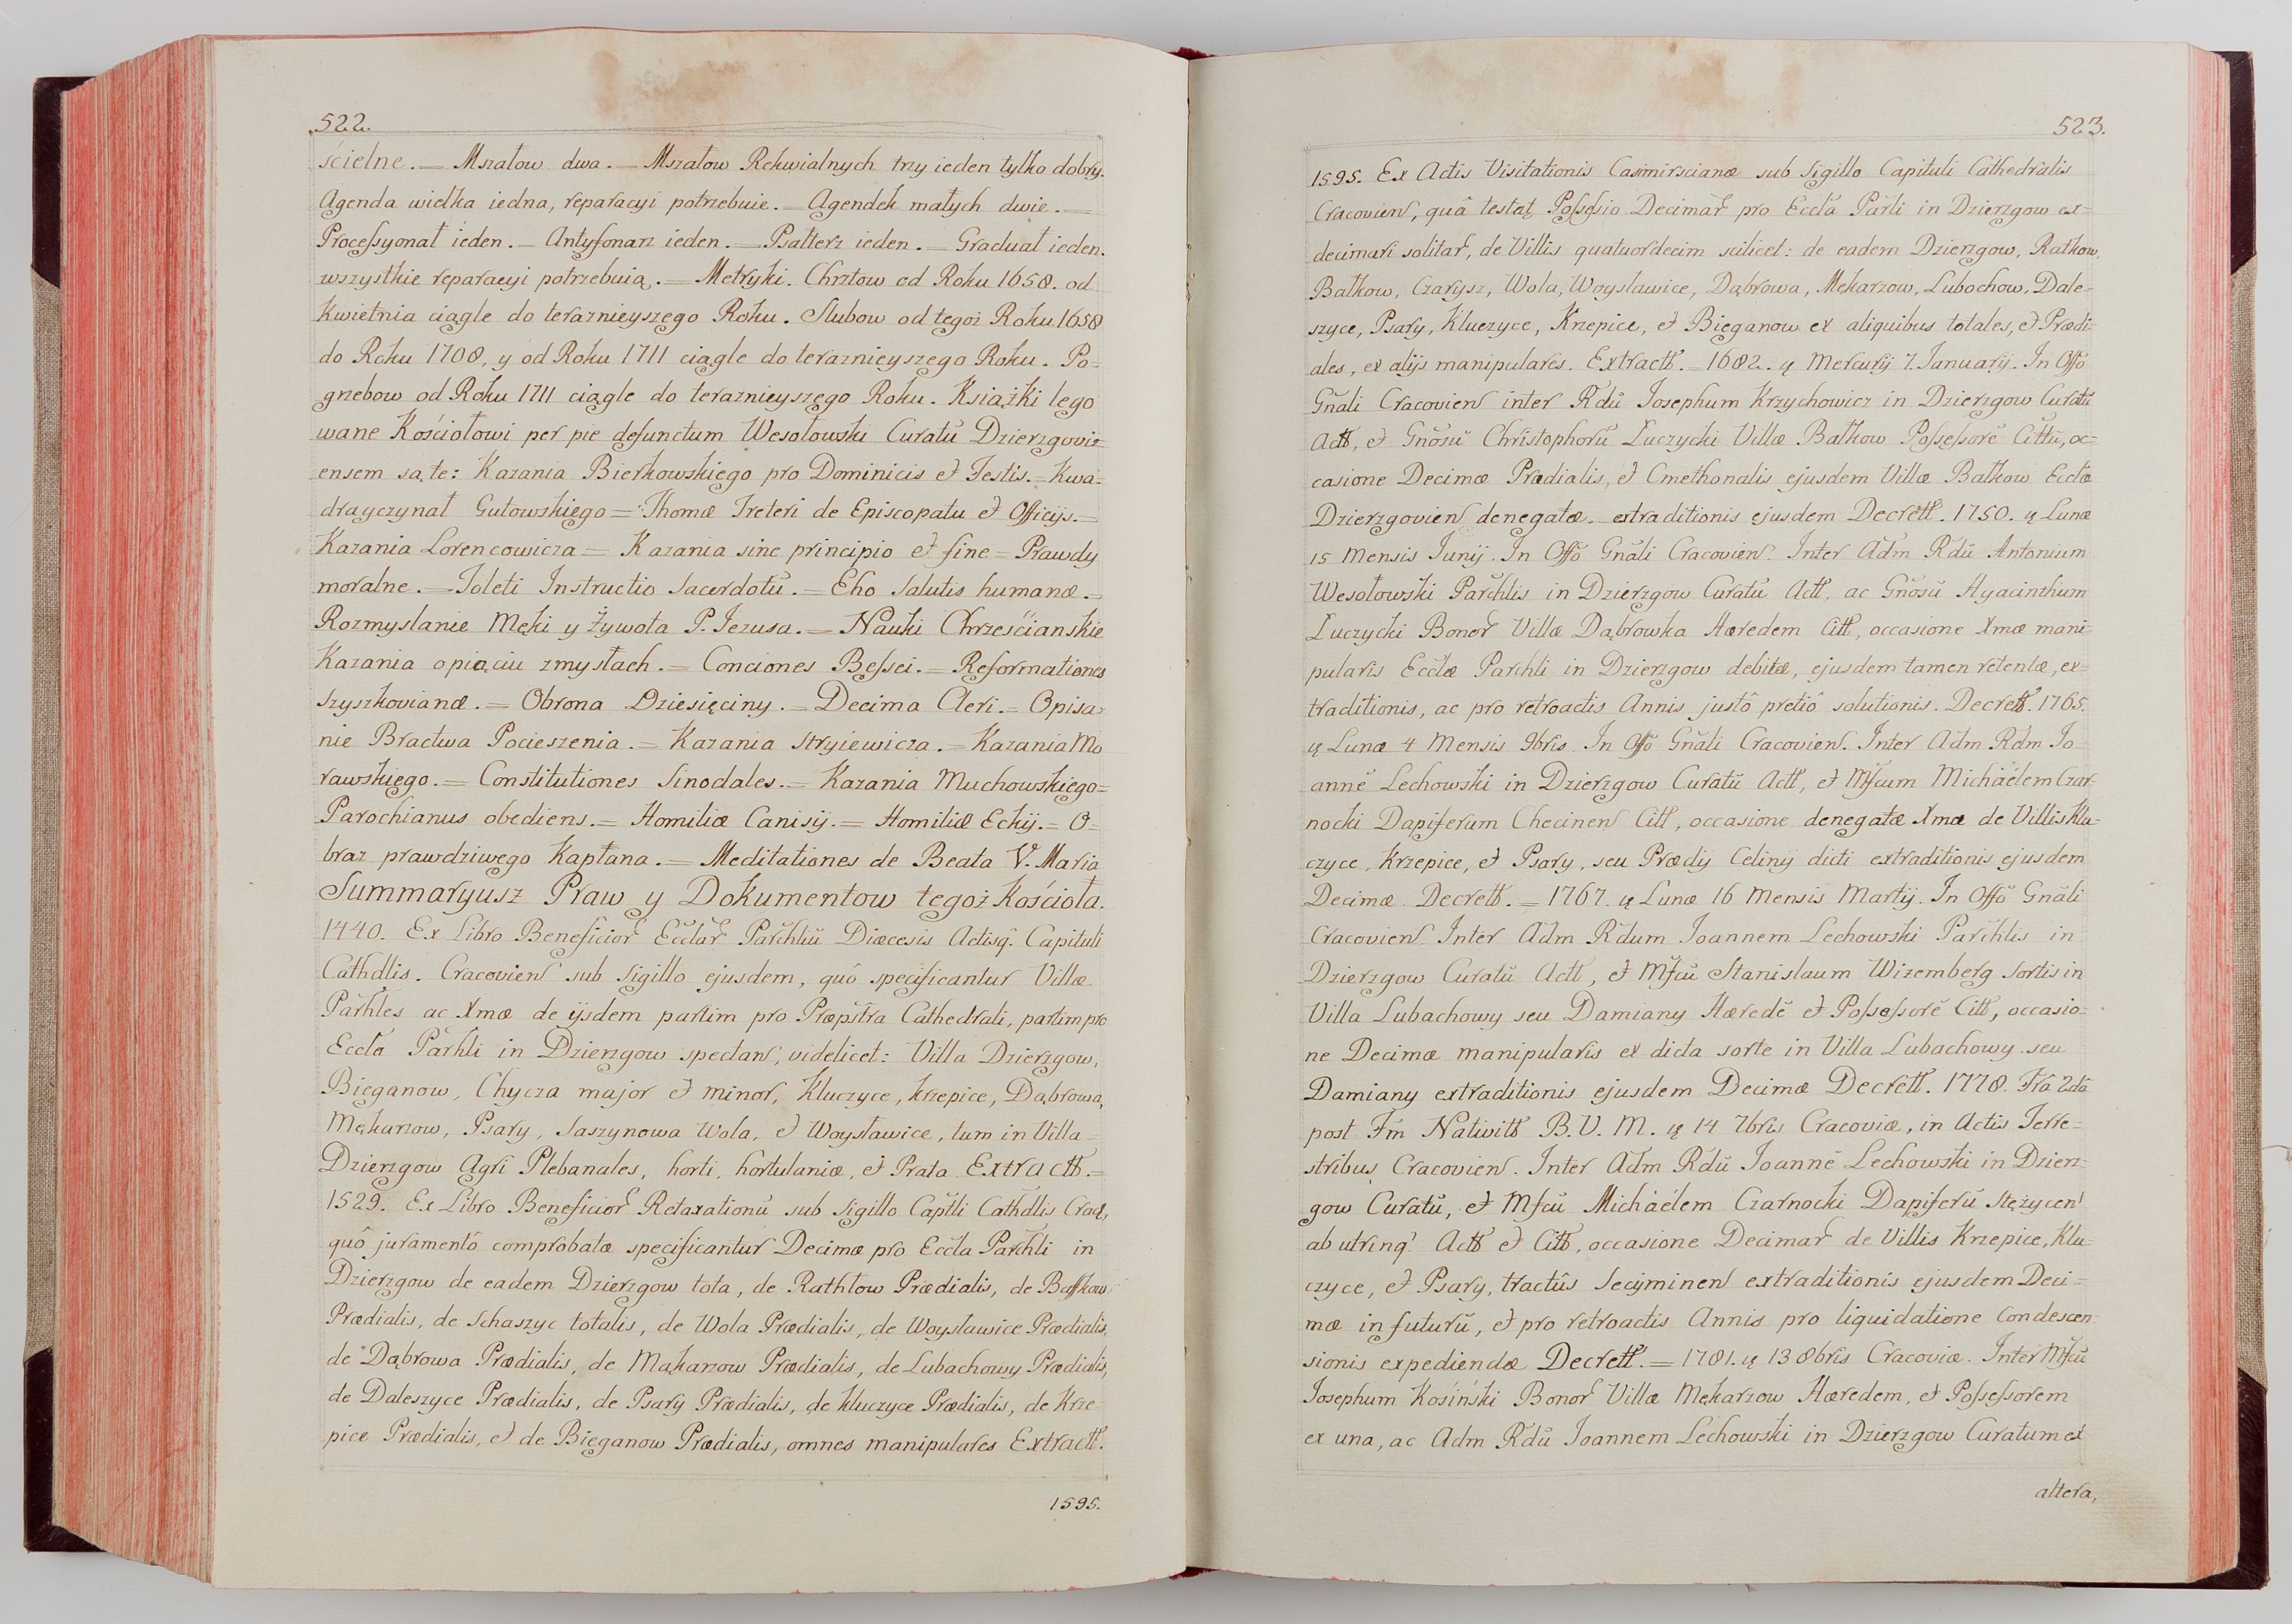 522.
ścielne. = Mszałow dwa. = Mszałow Rekwialnych trzy ieden tylko dobry.
Agenda wielka iedna, reparacyi potrzebuie. = Agendek małych dwie. =
Processyonał ieden. = Antyfonarz ieden. = Psałterz ieden. = Graduał ieden.
wszystkie reparacyi potrzebuią. = Metryki. Chrztow od Roku 1658. od
Kwietnia ciągle do teraznieyszego Roku. Slubow od tegoż Roku 1658
do Roku 1708, y od Roku 1711 ciągle do teraznieyszego Roku. Po=
grzebow od Roku 1711 ciągle do teraznieyszego Roku. Książki lego
wane Kościołowi per pie defunctum Wesołowski Curatū Dzierzgovi=
ensem są te: Kazania Bierkowskiego pro Dominicis et Festis. = Kwa=
dragczynał Gutowskiego = Thomæ Treteri de Episcopatu et Officijs. =
Kazania Lorencowicza = Kazania sine principio et fine = Prawdy
moralne. = Toleti Instructio Sacerdotū. = Eho Salutis humanæ. =
Rozmyslanie Męki y Żywota P. Jezusa. = Nauki Chrześcianskie
Kazania o pięciu zmysłach. = Conciones Bessei. = Reformationes
Szyszkovianæ. = Obrona Dziesięciny. = Decima Cleri. = Opisa=
nie Bractwa Pocieszenia. = Kazania Stryiewicza. = Kazania Mo
rawskiego. = Constitutiones Sinodales. = Kazania Muchowskiego =
Parochianus obediens. = Homiliæ Canisij. = Homiliæ Eckij. = O=
braz prawdziwego Kapłana. = Meditationes de Beata V. Maria
Summaryusz Praw y Dokumentow tegoż Kościoła.
1440. Ex Libro Beneficior Ecclar Parchliū Diæcesis Actisq. Capituli
Cathdlis. Cracovien sub Sigillo ejusdem, quô specificantur Villæ
Parhles ac Xmæ de ijsdem partim pro Præpstra Cathedrali, partim pro
Eccla Parhli in Dzierzgow spectan, videlicet: Villa Dzierzgow,
Bieganow, Chycza major et minor, Kluczyce, Krzepice, Dąbrowa,
Mękarzow, Psary, Saszynowa Wola, et Woysławice, tum in Villa =
Dzierzgow Agri Plebanales, horti, hortulaniæ, et Prata Extractt. =
1529. Ex Libro Beneficior Retaxationū sub Sigillo Captli Cathdlis Crac,
quô juramentô comprobatæ specificantur Decimæ pro Eccla Parchli in
Dzierzgow de eadem Dzierzgow tota, de Rathlow Prædialis, de Bathkow
Prædialis, de Schaszyc totalis, de Wola Prædialis, de Woyslawice Prædialis,
de Dąbrowa Prædialis, de Mąkarzow Prædialis, de Lubachowy Prædialis,
de Daleszyce Prædialis, de Psary Prædialis, de Kluczyce Prædialis, de Krze
pice Prædialis, et de Bieganow Prædialis, omnes manipulares Extractt.
1595.
523.
1595. Ex Actis Visitationis Casimirscianæ sub Sigillo Capituli Cathedralis
Cracovien, quâ testat Possessio Decimar pro Eccla Parli in Dzierzgow ex=
decimari solitar, de Villis quatuordecim scilicet: de eadem Dzierzgow, Ratkow,
Bałkow, Czarysz, Wola, Woyslawice, Dąbrowa, Mękarzow, Lubochow, Dale=
szyce, Psary, Kluczyce, Krzepice, et Bieganow ex aliquibus totales, et Prædi=
ales, ex alijs manipulares. Extractt. = 1682. ę Mercurij 7. Januarij. In Offo
Gnali Cracovien inter Rdū Josephum Krzychowicz in Dzierzgow Curatū
Actt, et Gnosū Christophorū Łuczycki Villæ Bałkow Possessorē Cittū, oc=
casione Decimæ Prædialis, et Cmethonalis ejusdem Villæ Bałkow Ecclæ
Dzierzgovien denegatæ extraditionis ejusdem Decrett. 1750. ę Lunæ
15 Mensis Junij. In Offo Gnali Cracovien. Inter Adm Rdū Antonium
Wesołowski Parchlis in Dzierzgow Curatū Actt, ac Gnosū Hyacinthum
Łuczycki Bonor Villæ Dąbrowka Hæredem Citt, occasione Xmæ mani=
pularis Ecclæ Parchli in Dzierzgow debitæ, ejusdem tamen retentæ, ex=
traditionis, ac pro retroactis Annis justô pretiô solutionis. Decrett. 1765.
ę Lunæ 4 Mensis 9bris In Offo Gnali Cracovien. Inter Adm Rdm Jo=
annē Lechowski in Dzierzgow Curatū Actt, et Mfcum Michäelem Czar=
nocki Dapiferum Checinen Citt, occasione denegatæ Xmæ de Villis Klu=
czyce, Krzepice, et Psary, seu Prædij Celiny dicti extraditionis ejusdem
Decimæ Decrett. = 1767. ę Lunæ 16 Mensis Martij. In Offo Gnali
Cracovien Inter Adm Rdum Joannem Lechowski Parchlis in
Dzierzgow Curatū Actt, et Mfcū Stanislaum Wizemberg Sortis in
Villa Lubachowy seu Damiany Hæredē et Possessorē Citt, occasio=
ne Decimæ manipularis ex dicta sorte in Villa Lubachowy seu
Damiany extraditionis ejusdem Decimæ Decrett. 1778. Fra 2da
post Fm Nativitt B. V. M. ę 14 7bris Cracoviæ, in Actis Terre=
stribus Cracovien. Inter Adm Rdū Joannē Lechowski in Dzierz=
gow Curatū, et Mfcū Michäelem Czarnocki Dapiferū Stężycen
ab utrinq. Actt et Citt, occasione Decimar de Villis Krzepice, Klu=
czyce, et Psary, tractûs Secyminen extraditionis ejusdem Deci=
mæ in futurū, et pro retroactis Annis pro liquidatione Condescen
sionis expediendæ Decrett. = 1781. ę 13 8bris Cracoviæ. Inter Mfcū
Josephum Kosiński Bonor Villæ Mękarzow Hæredem, et Possessorem
ex una, ac Adm Rdū Joannem Lechowski in Dzierzgow Curatum ex
altera,